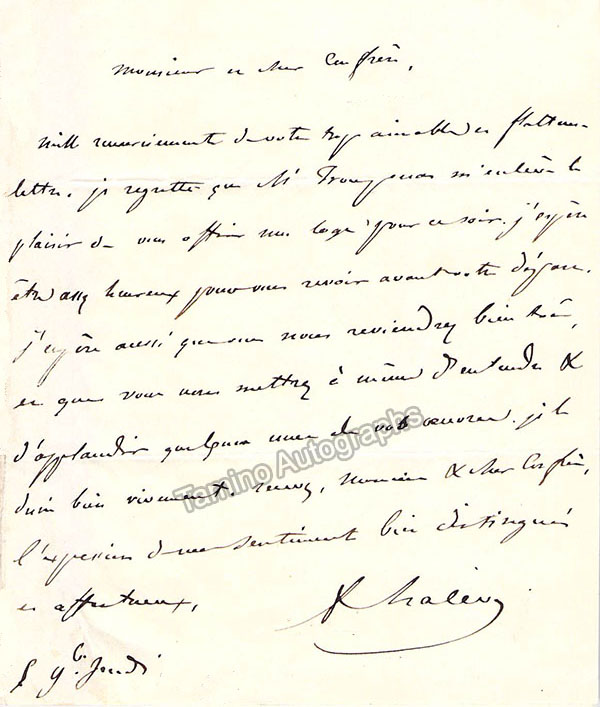 Monsieur et cher Confrère,
Mille remerciements de votre trop aimable et flatteuse
lettre. je regrette que Mr m'enlève le
plaisir de vous offrir ma loge pour ce soir. j'espère
être assez heureux pour vous revoir avant votre départ.
j'espère aussi que vous nous reviendrez bientôt,
et que vous nous mettrez à même d'entendre &
d'applaudir quelques unes de vos œuvres. je le
désire bien vivement. recevez, Monsieur & cher Confrère,
l'expression de mes sentiments bien distingués
et affectueux,
F Halévy
9b. Jeudi
Tamino Autographs